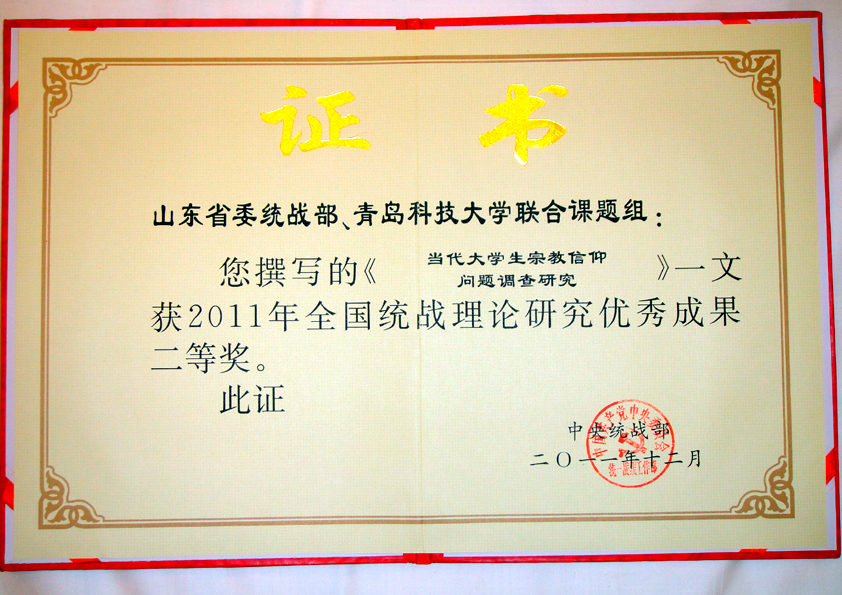 证 书
山东省委统战部、青岛科技大学联合课题组：
您撰写的《当代大学生宗教信仰问题调查研究》一文
获2011年全国统战理论研究优秀成果
二等奖。
此证
中央统战部
二〇一一年十二月
中国共产党中央委员会
统一战线工作部